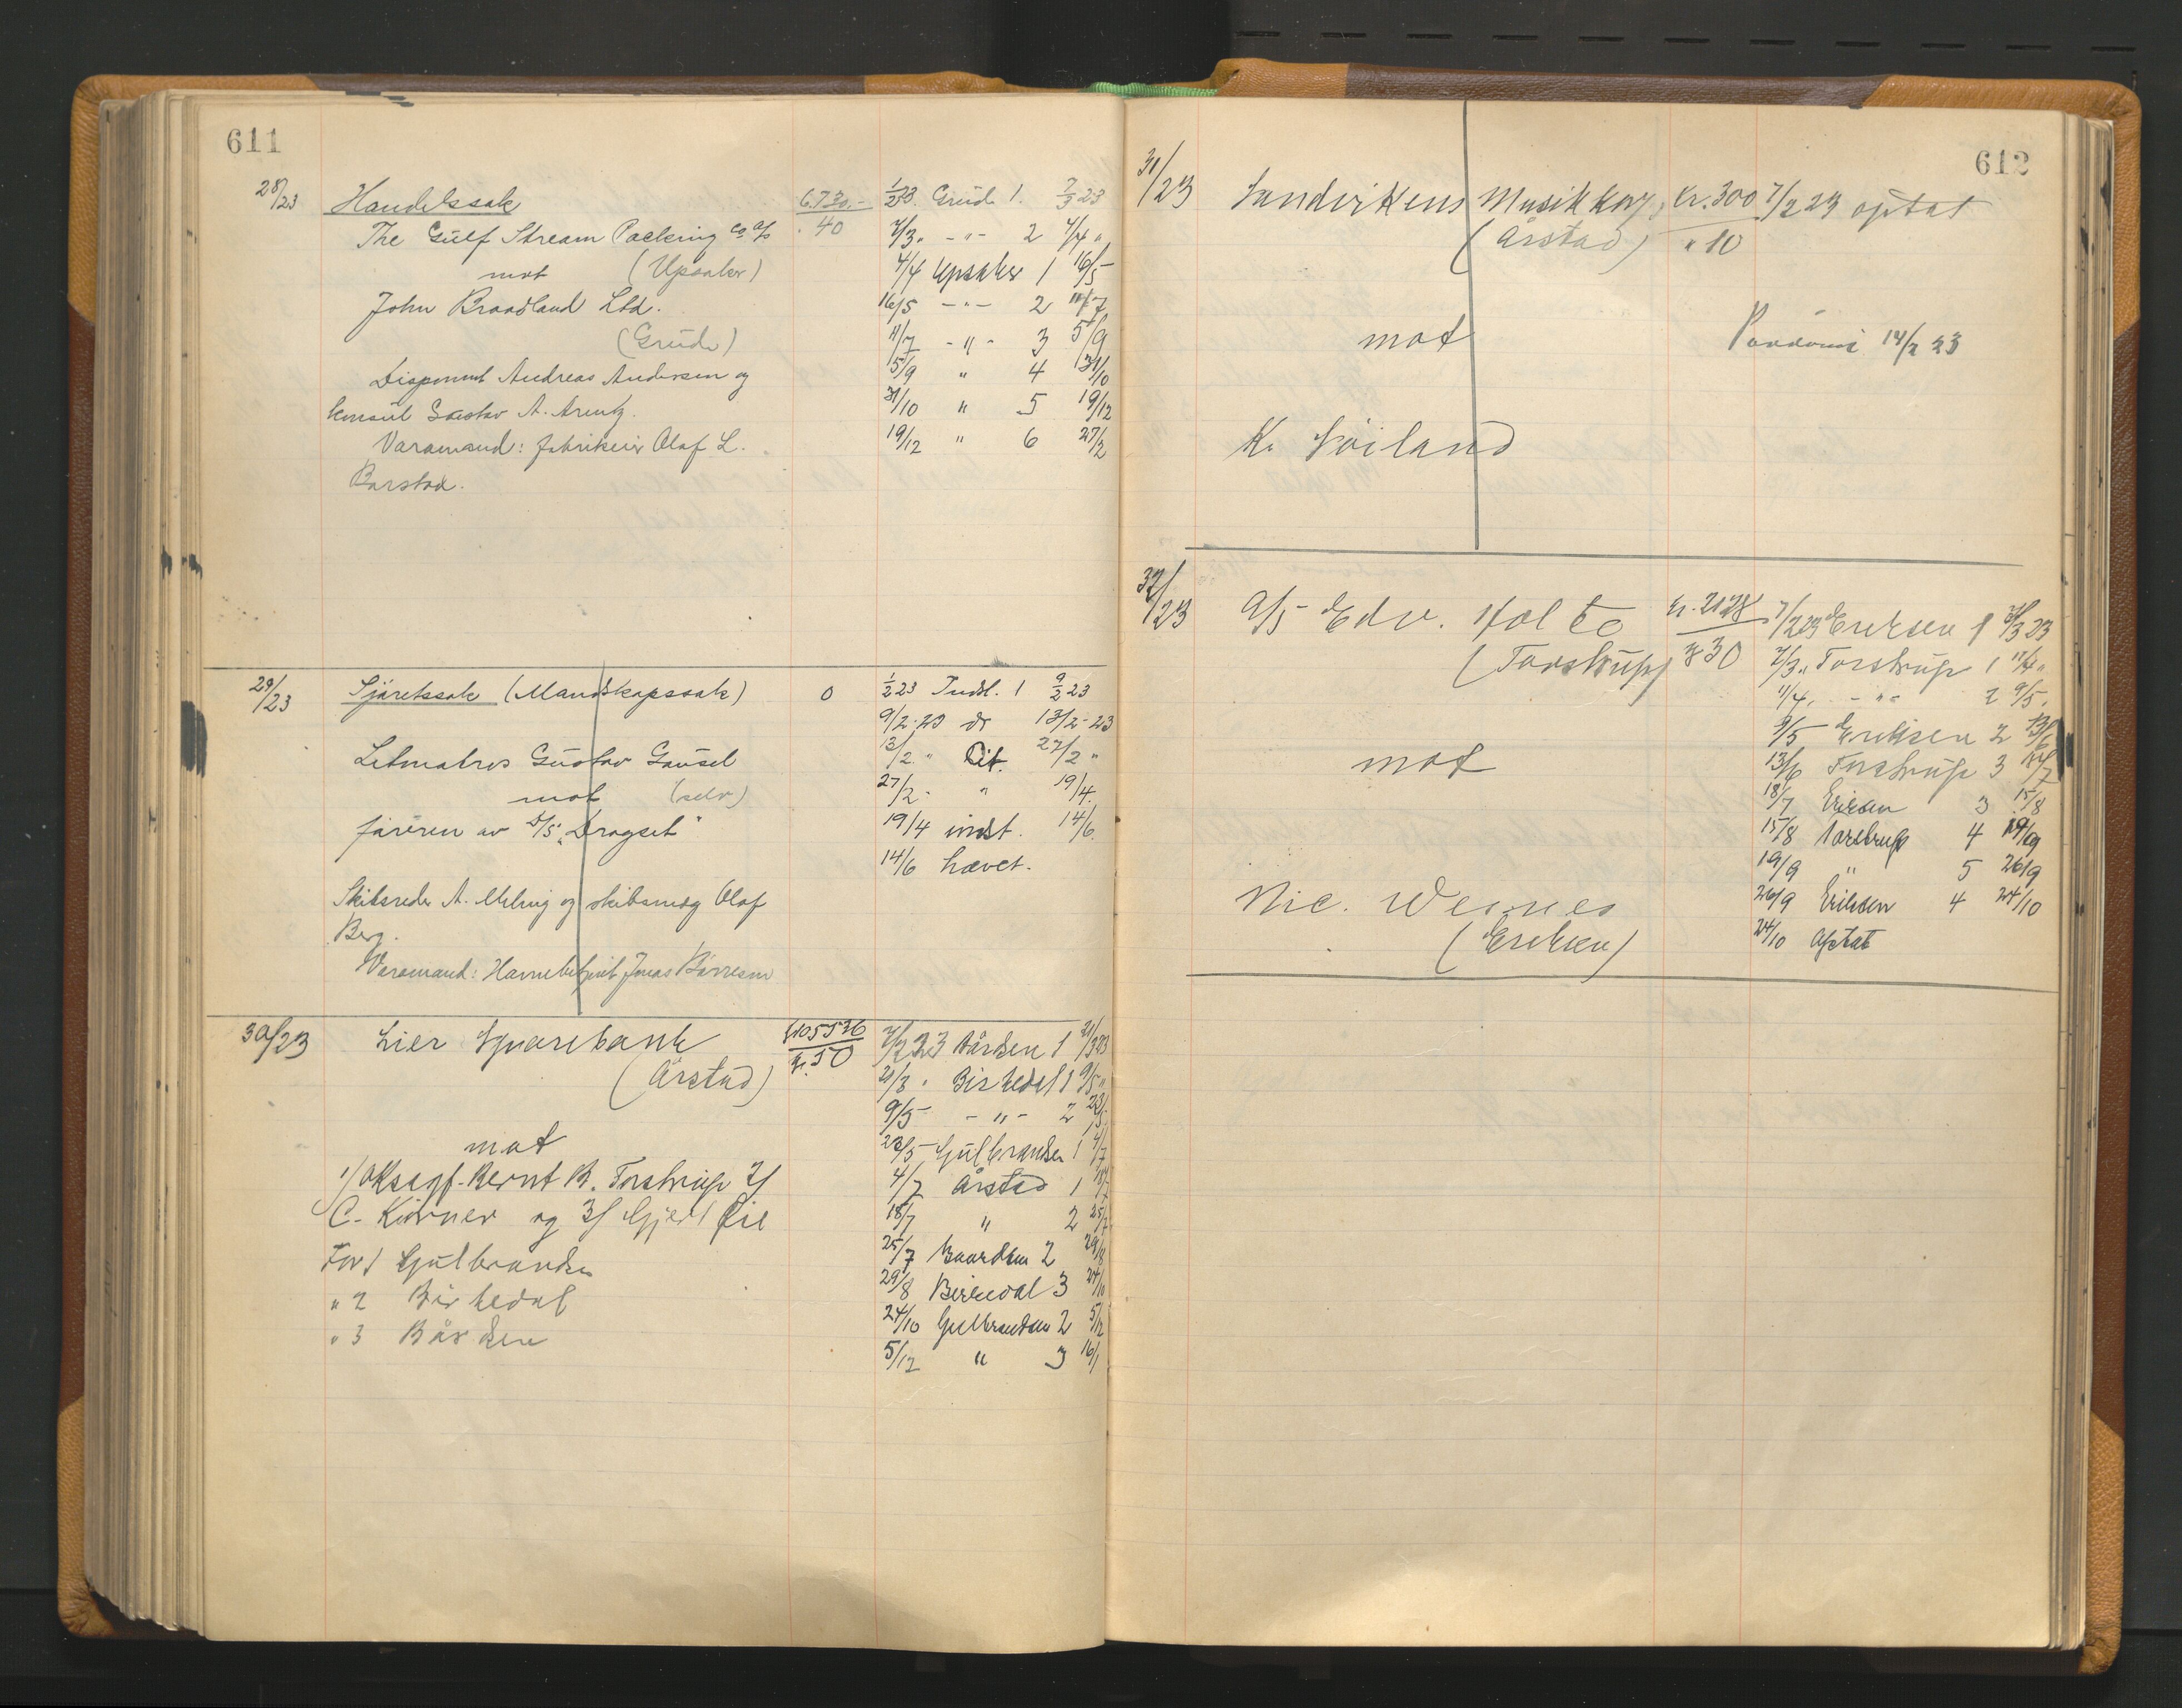 611
28/23 Handelssak 6.730.- 1/2 23. Grude 1. 7/3 23
The Gulf Stream Packing Co A/S 40 7/3 " -"- 2 4/4 "
mot (Upsaker) 4/4 Upsaker 1 16/5
John Braadland Ltd. 16/5 -"- 2 11/7
(Grude) 11/7 -"- 3 5/9
Disponent Andreas Andersen og 5/9 " 4 31/10
konsul Gustav A. Arentz. 31/10 " 5 19/12
Varamand: fabrikeier Olaf L. 19/12 " 6 27/2
Barstad.
29/23 Sjøretssak (Mandskapssak) 0 1/2 23 Indst. 1 9/2 23
9/2-23 do 13/2-23
Letmatros Gustav Gausel 13/2 " Cit. 27/2 "
mot (selv) 27/2 - " 19/4.
føreren av D/S "Dragset" 19/4 indst. 14/6.
14/6 hævet.
Skibsreder A. Meling og skibsmæg Olaf
Berg.
Varamand: Havnebetjent Jonas Børresen
30/23 Lier Sparebank 7/2 23 Bårdsen 1 21/3 23
(Årstad) kr. 50 21/3 " Birkedal 1 9/5 "
9/5 -"- 2 23/5
mot 23/5 Gulbrandsen 1 4/7
1/ O.R.sagf. Bernt B. Torstrup 2/ 4/7 Årstad 1 18/7
C. Körner og 3/ Gjert 18/7 " 2 25/7
For 1 Gulbrandsen 25/7 Baardsen 2 29/8
" 2 Birkedal 29/8 Birkedal 3 24/10
" 3 Bårdsen 24/10 Gulbrandsen 2 5/12
5/12 " 3 16/1
612
31/23 Sandvikens Musikkorps kr. 300 7/2 23 optat
(Årstad) " 10
mot 14/2 23
K. Söiland
32/23 A/S Edv. Holto kr. 2128 7/2 23 Eriksen 1 7/3 23
(Torstrup) " 30 7/3 " Torstrup 1 11/4 "
11/4. -"- 2 9/5.
mot 9/5 Eriksen 2 13/6
13/6 Torstrup 3 18/7
18/7 Eriksen 3 15/8
15/8 Torstrup 4 19/9
19/9 " 5 26/9
Nic. Wernes 26/9 Eriksen 4 24/10
(Eriksen) 24/10 Optat